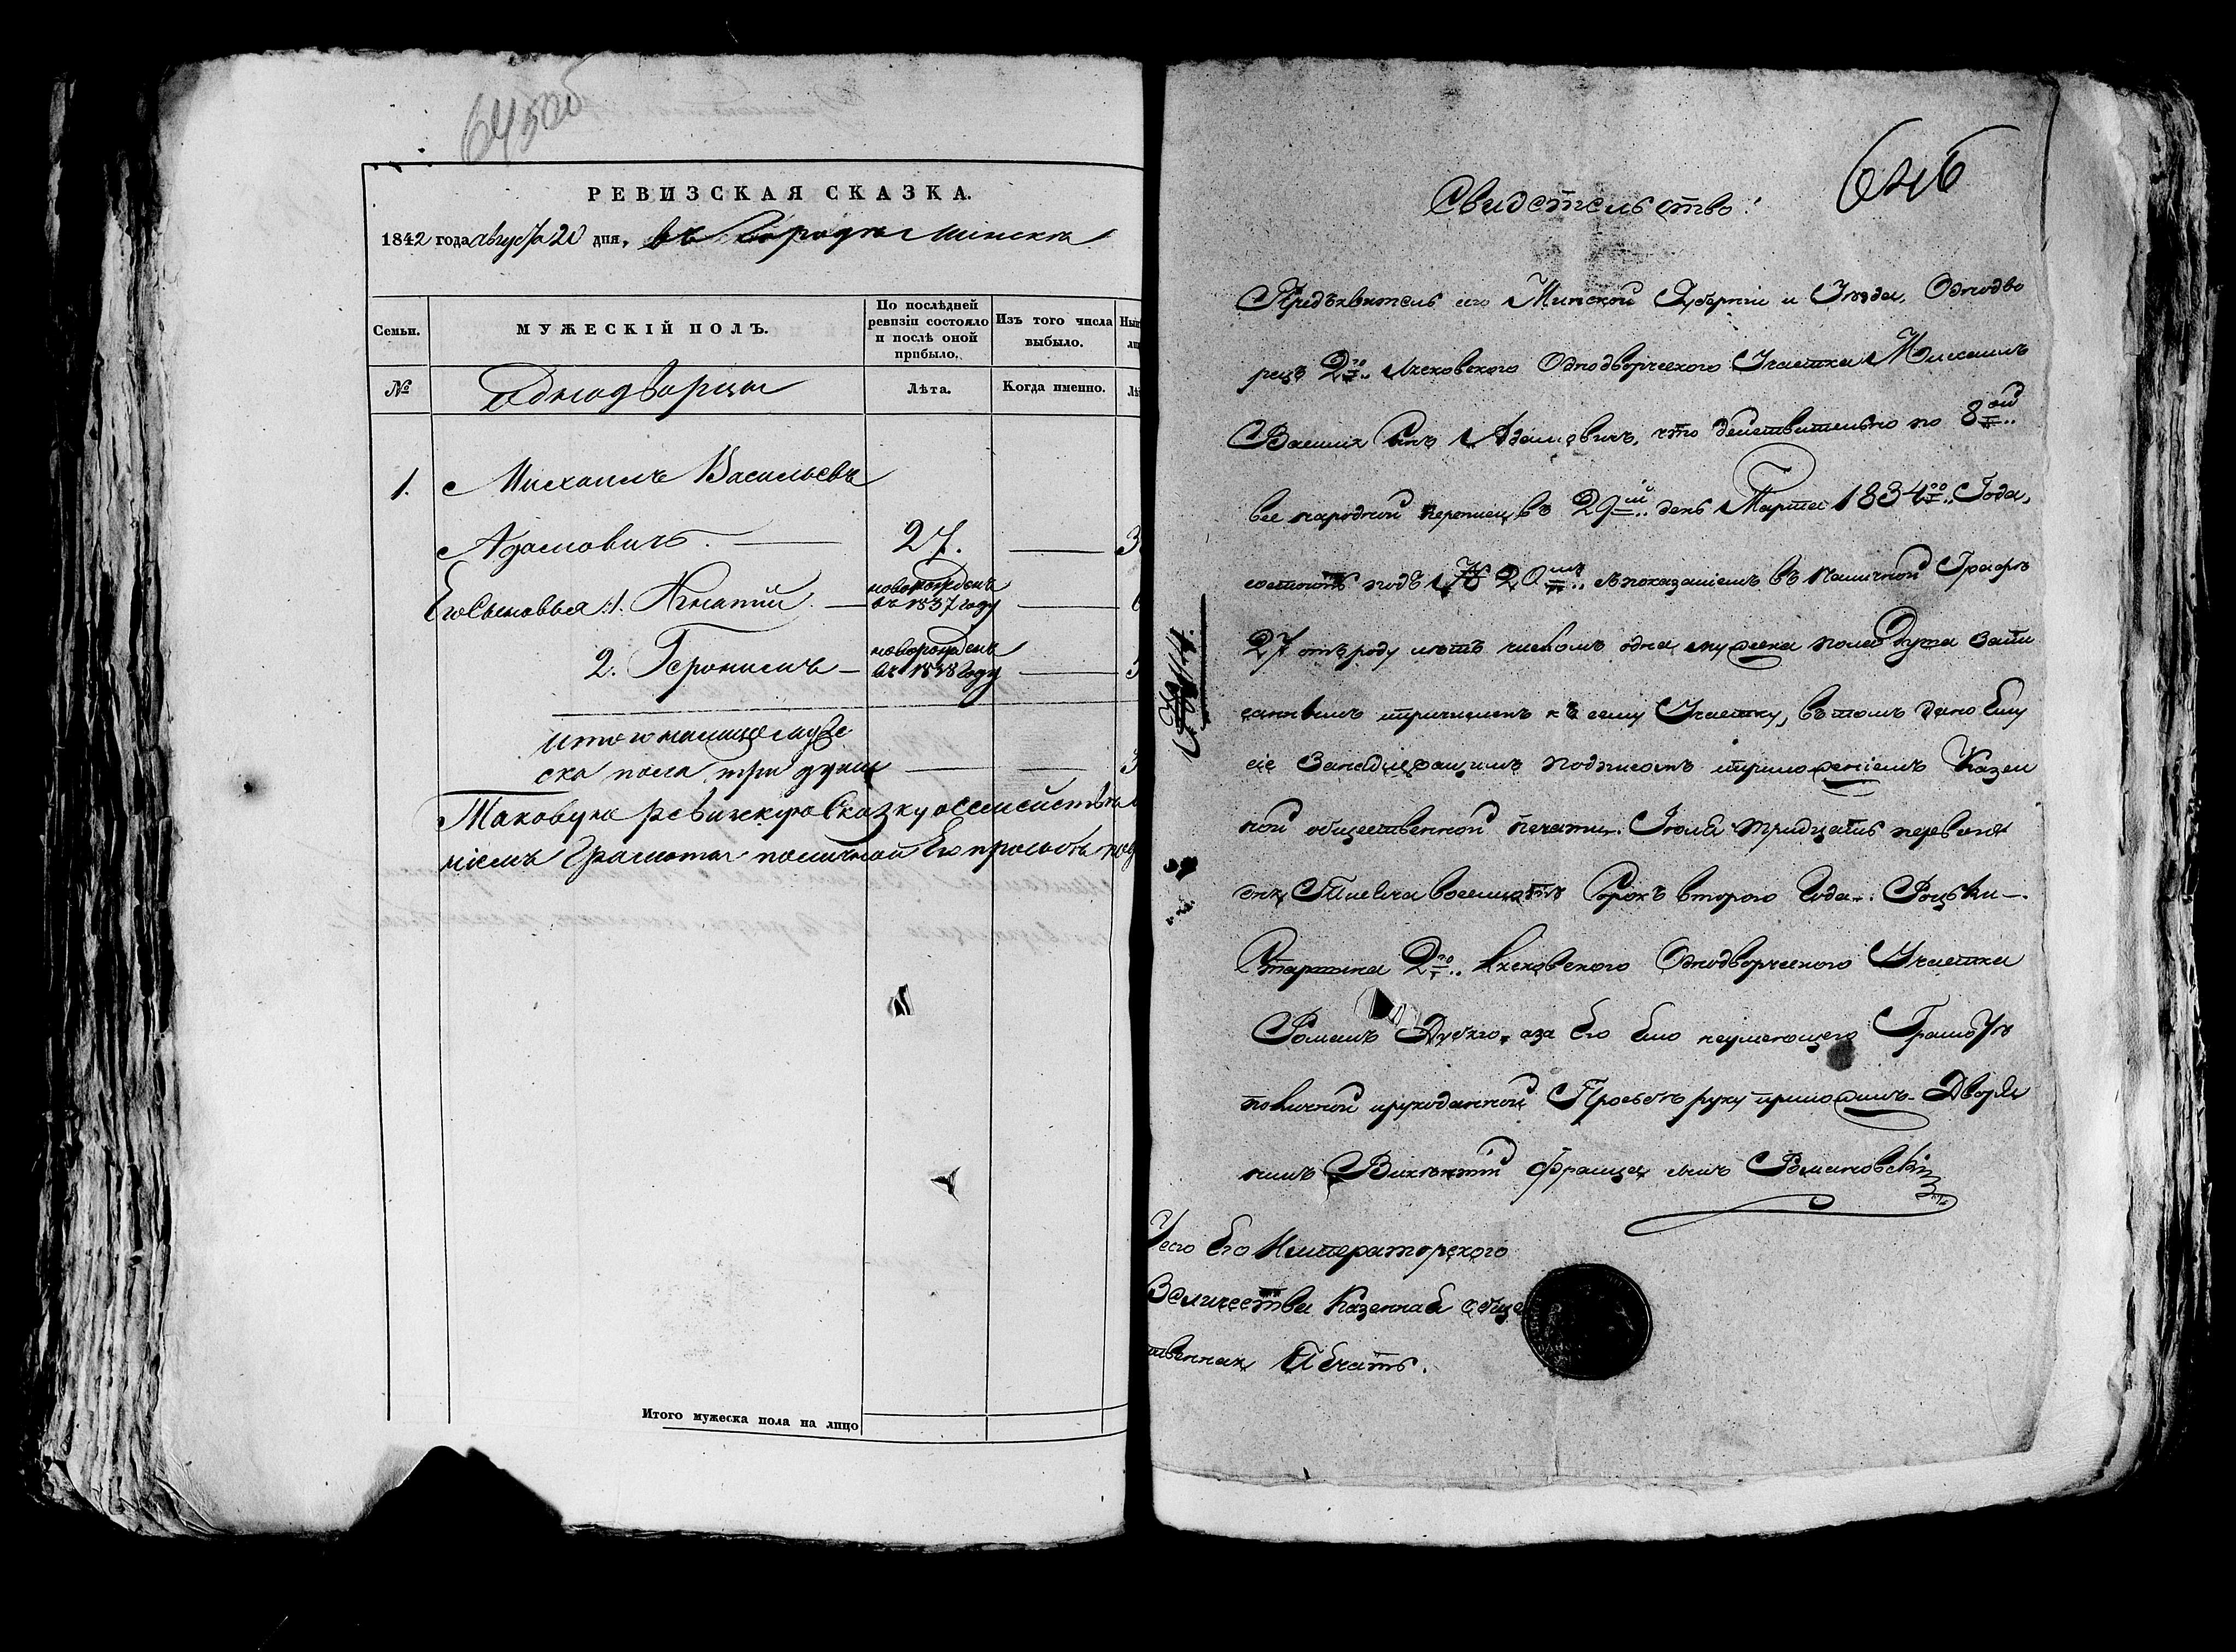 645об
РЕВИЗСКАЯ СКАЗКА.
1842 года августа 20 дня, въ Городѣ Минскѣ
Семьи.
МУЖЕСКІЙ ПОЛЪ.
По послѣдней ревизіи состояло и послѣ оной прибыло.
Изъ того числа выбыло.
№
Однодворцы
Лѣта.
Когда именно.
1. Михаилъ Васильевъ
Адамовичъ. 27.
Его Сыновья: 1. Игнатій новорожденъ въ 1837 году
2. Геронимъ новорожденъ въ 1838 году
Итого налицо муже
ска пола три души 3
Таковую ревизскую Сказку о семействѣ
ніемъ Грамоты по личной Его просьбѣ
Итого мужеска пола на лицо
646
Свидѣтельство!
Предъявитель сего Минской Губерніи и Уѣзда, Однодво
рецъ 2го Однодворческого Участка Михаилъ
Васильевъ Сынъ Адамовичъ, что действительно по 8ой
все народной переписи, въ 29й день Марта 1834го Года,
состоитъ подъ № 20мъ съ показаніемъ въ Наличной Графѣ
27 отъ роду лѣтъ числомъ одна мужеска пола Душа Запи
саннымъ причисленъ къ сему Участку, въ томъ дано Ему
сіе Занадлежащимъ подписомъ и приложеніемъ Казен
ной общественной печати. Іюля тридцать перваго
дня Тысяча восемьсотъ Сорокъ второго Года.
Старшина 2го Однодворческого Участка
Романъ а за Его Ємо неумеющего Грамотѣ
по личной и рукоданной Просьбѣ руку приложилъ Дворя
нинъ Викентій Францъ сынъ Романовскій
Сего Его Императорского
Величества Казенная обще
твенная Печать.